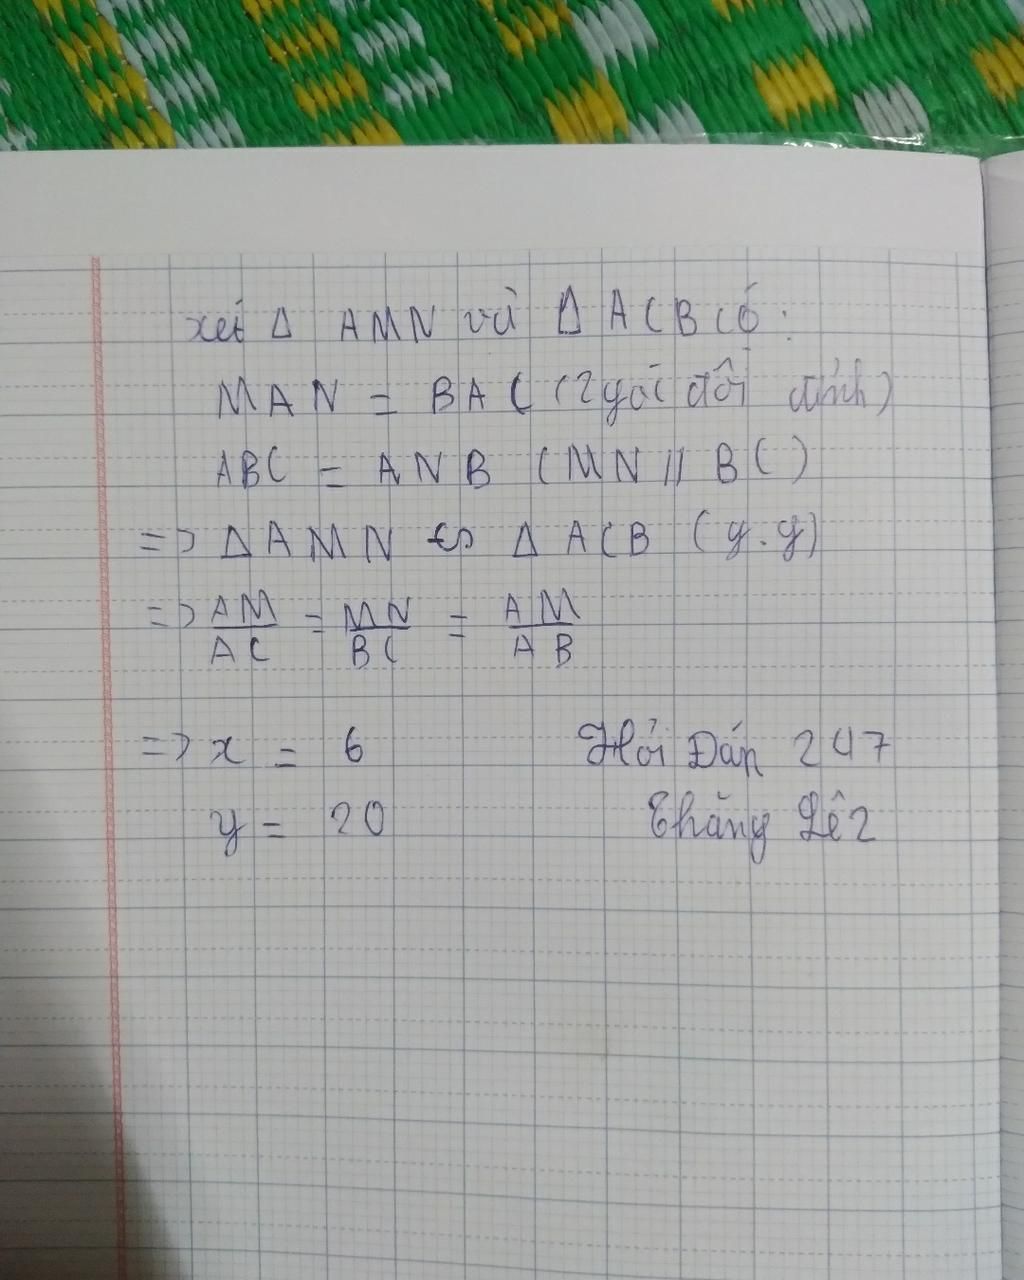 xét Δ AMN và Δ ACB có:
MAN = BAC (2 góc đối đỉnh)
ABC = ANB (MN // BC)
=> Δ AMN ∽ Δ ACB (g.g)
=> AM/AC = MN/BC = AM/AB
=> x = 6 Hỏi Đáp 247
y = 20 Thăng Lê2